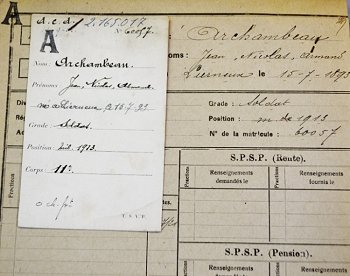 A
a.c.d. 2.165.017
A
N° 60057.
Nom: Archambeau.
Prénoms: Jean, Nicolas, Armand
né à Lierneux le 15.7.93
Grade: Soldat.
Position: Mil. 1913.
Corps: 11e.
T.S.V.P.
Archambeau
Jean, Nicolas, Armand
Lierneux le 15-7-1893
Grade: Soldat
Position: m. de 1913
N° de la matricule: 60057
S.P.S.P. (Rente).
Fraction
Renseignements demandés le
Fraction
Renseignements fournis le
S.P.S.P. (Pension).
Fraction
Renseignements
Renseignements